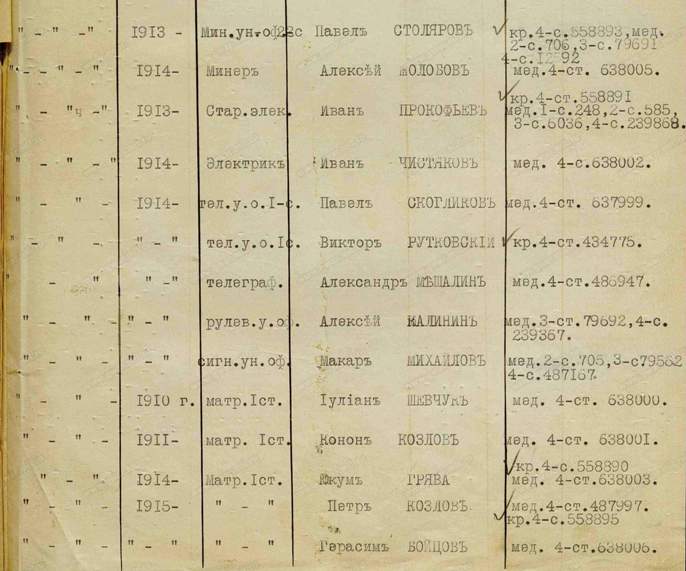 " - " - " 1913 - Мин.ун.оф2йс Павелъ СТОЛЯРОВЪ кр.4-с.558893,мед.
2-с.706,3-с.79691
4-с.12592
" - " - " 1914- Минеръ Алексѣй МОЛОБОВЪ мед.4-ст. 638005.
кр.4-ст.558891
" - " - " 1913- Стар.элек. Иванъ ПРОКОФЬЕВЪ мед.1-с.248,2-с.585,
3-с.6036,4-с.239868.
" - " - " 1914- Электрикъ Иванъ ЧИСТЯКОВЪ мед. 4-с.638002.
" - " - 1914- тел.у.о.I-с. Павелъ СКОГЛИКОВЪ мед.4-ст. 637999.
" - " - " - " тел.у.о.Iс. Викторъ РУТКОВСКІЙ кр.4-ст.434775.
" - " " - " телеграф. Александръ МѢШАЛИНЪ мед.4-ст.486947.
" - " " - " рулев.у.оф. Алексѣй КАЛИНИНЪ мед.3-ст.79692,4-с.
239367.
" - " - " - " сигн.ун.оф. Макаръ МИХАЙЛОВЪ мед.2-с.705,3-с79562
4-с.487167
" - " - 1910 г. матр.Iст. Іуліанъ ШЕВЧУКЪ мед. 4-ст. 638000.
" - " - 1911- матр. Iст. Кононъ КОЗЛОВЪ мед. 4-ст. 638001.
кр.4-с.558890
" - " - 1914- Матр.Iст. Якумъ ГРЯВА мед. 4-ст. 638003.
" - " - 1915- " - " Петръ КОЗЛОВЪ мед.4-ст.487997.
кр.4-с.558895
" - " - " - " " - " Герасимъ БОЙЦОВЪ мед. 4-ст.638006.